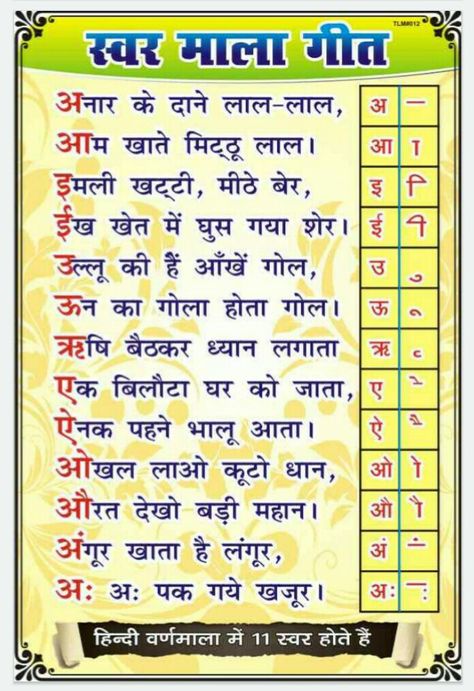 TLM#012
स्वर माला गीत
अनार के दाने लाल-लाल, अ –
आम खाते मिट्ठू लाल। आ ा
इमली खट्टी, मीठे बेर, इ ि
ईख खेत में घुस गया शेर। ई ी
उल्लू की हैं आँखें गोल, उ ु
ऊन का गोला होता गोल। ऊ ू
ऋषि बैठकर ध्यान लगाता ऋ ृ
एक बिलौटा घर को जाता, ए े
ऐनक पहने भालू आता। ऐ ै
ओखल लाओ कूटो धान, ओ ो
औरत देखो बड़ी महान। औ ौ
अंगूर खाता है लंगूर, अं ं
अः अः पक गये खजूर। अः ः
हिन्दी वर्णमाला में 11 स्वर होते हैं